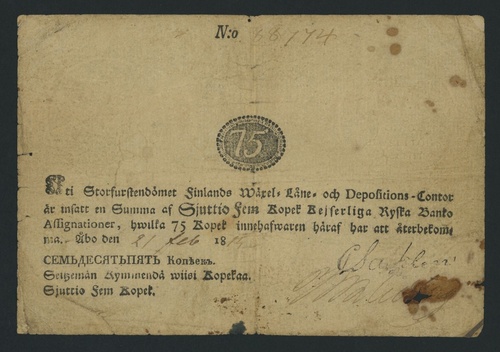 N:o 38174
75
Uti Storfurstendömet Finlands Wäxel- Låne- och Depositions-Contor
är insatt en Summa af Sjuttio Fem Kopek Kejserliga Ryska Banko
Assignationer, hwilka 75 Kopek innehafwaren häraf har att återbekom-
ma. Åbo den 21 feb 18
СЕМЬДЕСЯТЬПЯТЬ Копѣекъ.
Seitzemän Kymmendä wiisi Kopekaa.
Sjuttio Fem Kopek.